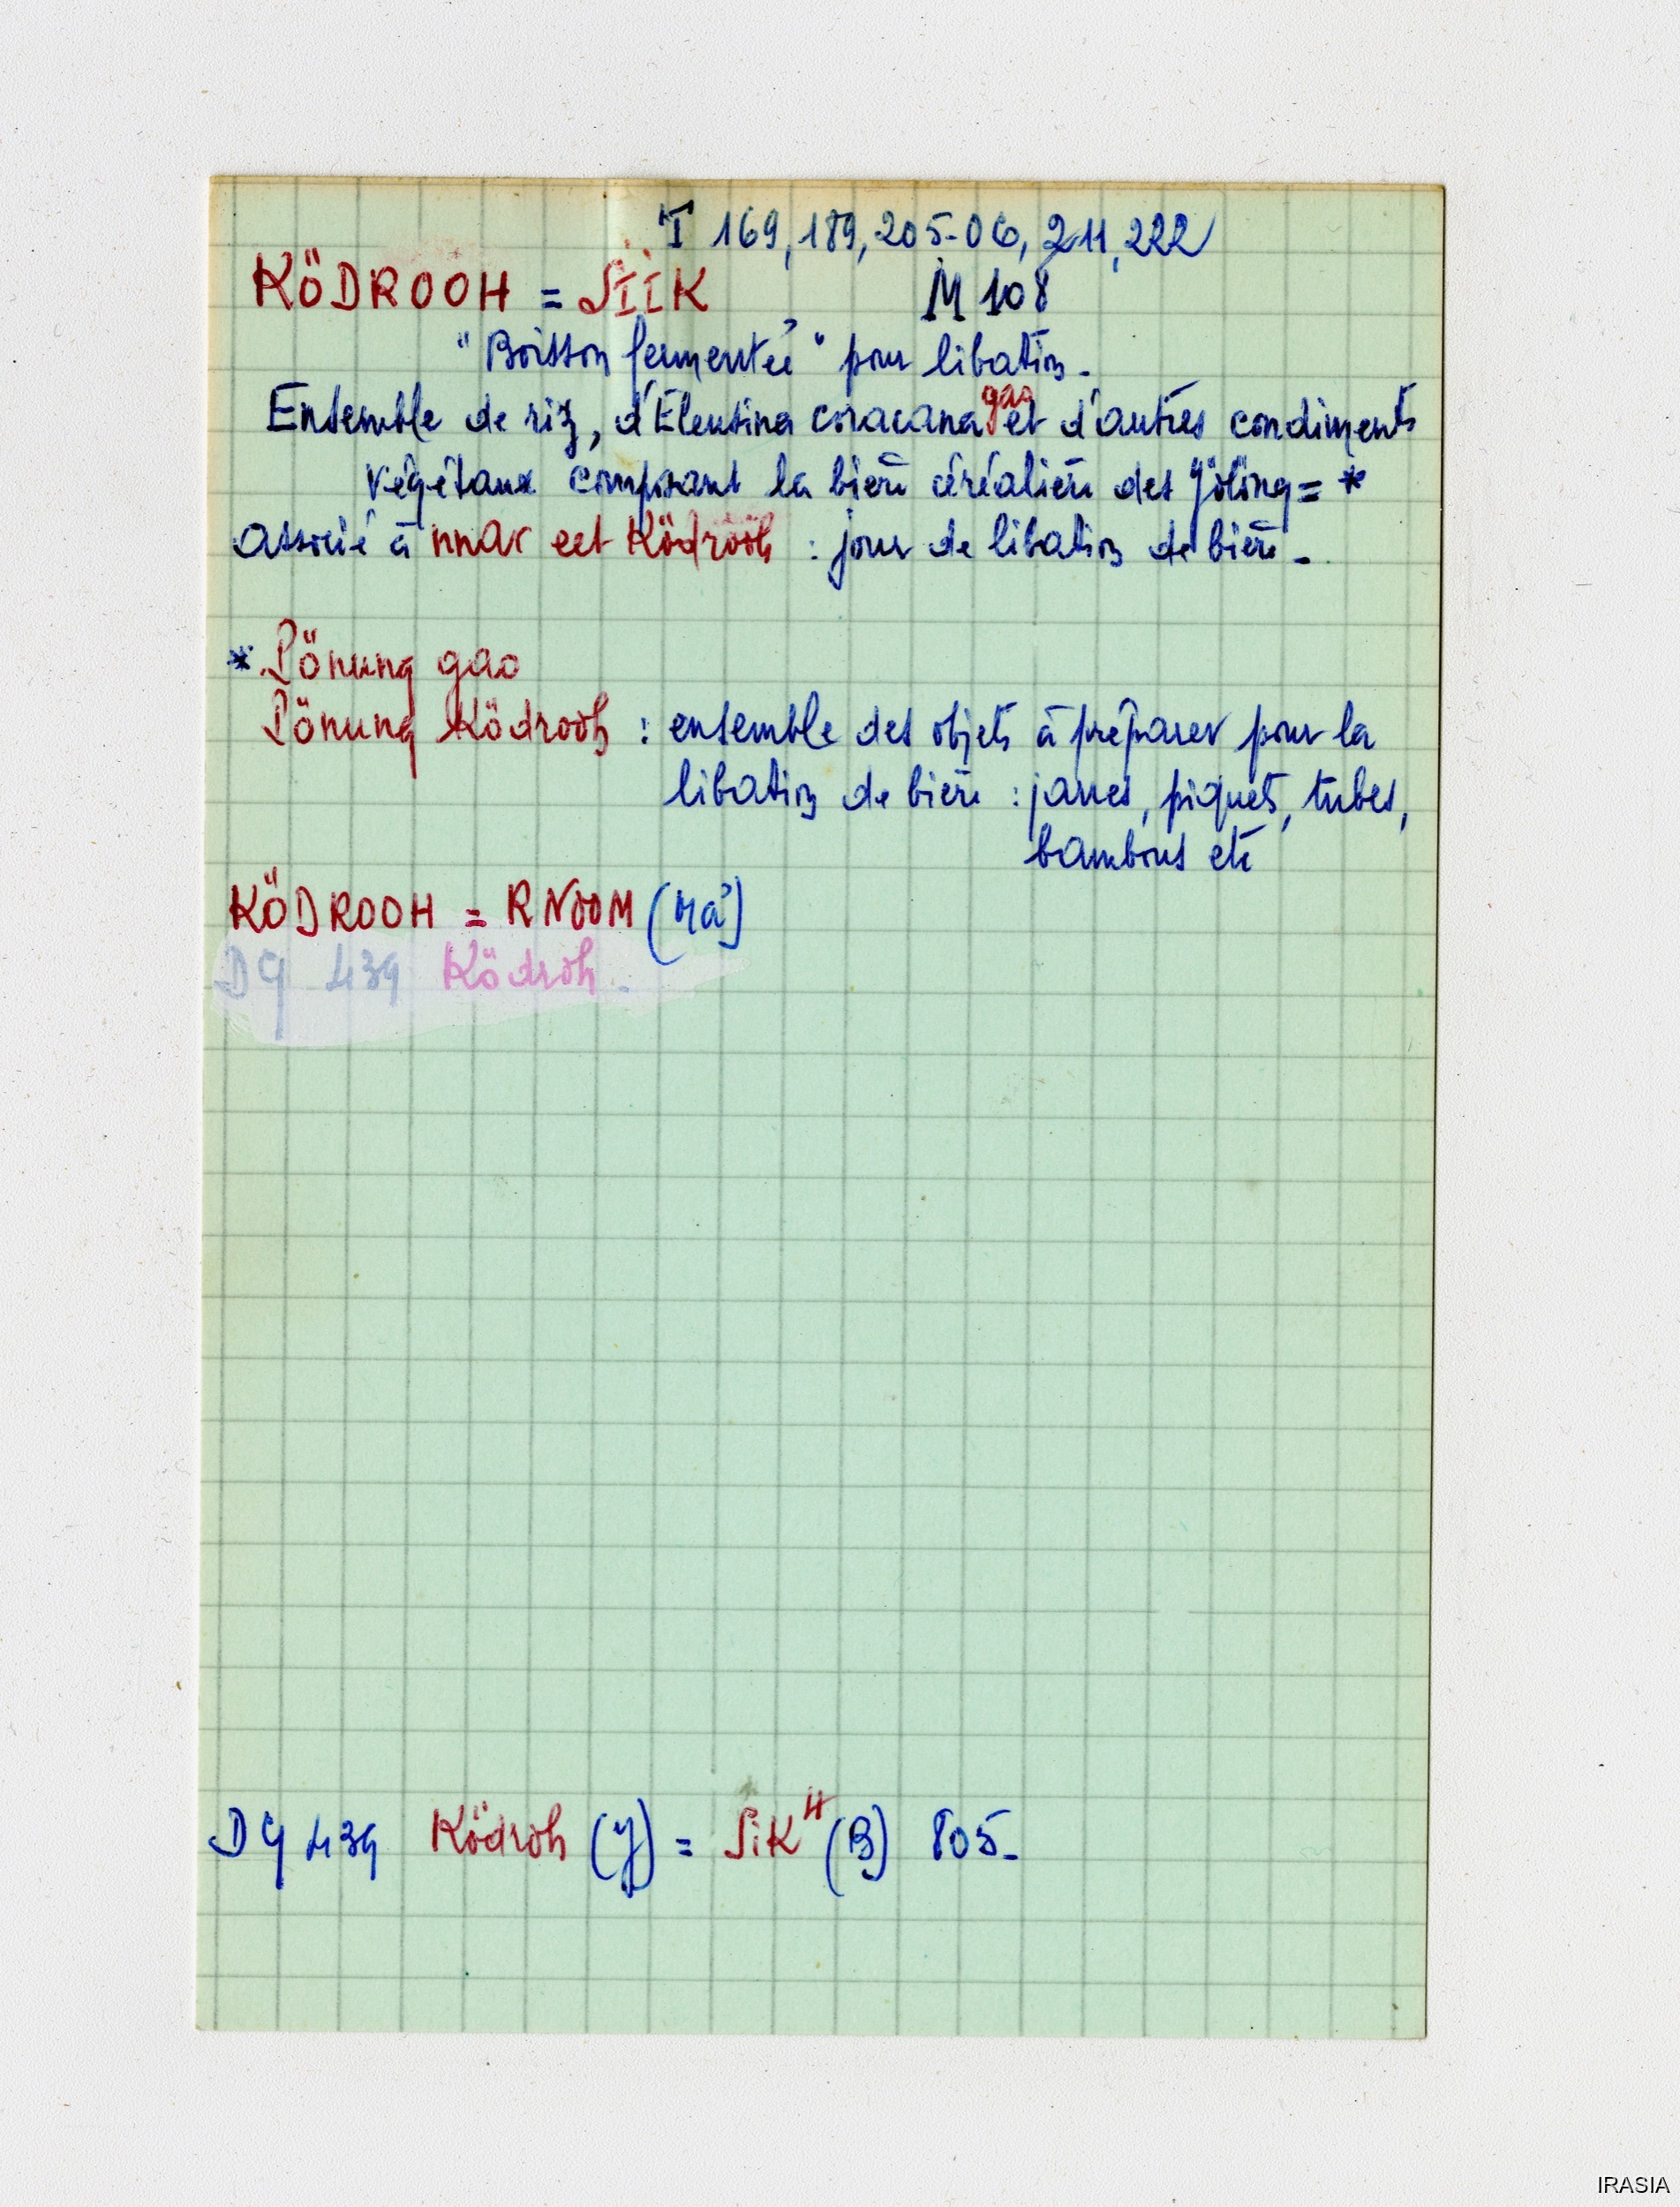 T 169, 189, 205-06, 211, 222
KÖDROOH = SIIK M 108
"Boisson fermentée" pour libation.
Ensemble de riz, d'Eleusina coracana gao et d'autres condiments
végétaux composant la bière céréalière des Jölöng = *
associé à nnar eet Ködrooh : jour de libation de bière -
* Pönung gao
Pönung Ködrooh : ensemble des objets à préparer pour la
libation de bière : jarres, piquets, tubes,
bambous etc
KÖDROOH = RNOOM
DG 439 Ködroh -
DG 439 Ködroh (J) = SiK 4 (B) 805 -
IRASIA